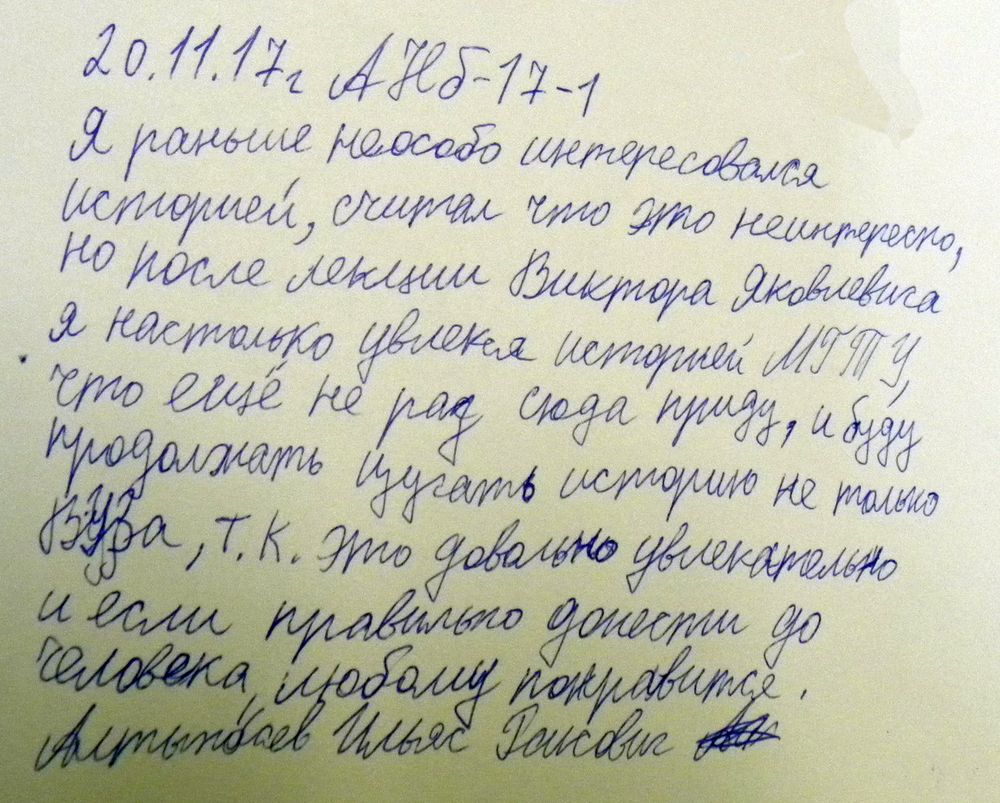 20.11.17г АНб-17-1
Я раньше неособо интересовался
историей, считал что это неинтересно,
но после лекции Виктора Яковлевича
я настолько увлекся историей МГТУ,
что ещё не раз сюда приду, и буду
продолжать изучать историю не только
Вуза, т.к. это довольно увлекательно
и если правильно донести до
человека, любому понравится.
Алтынбаев Ильяс